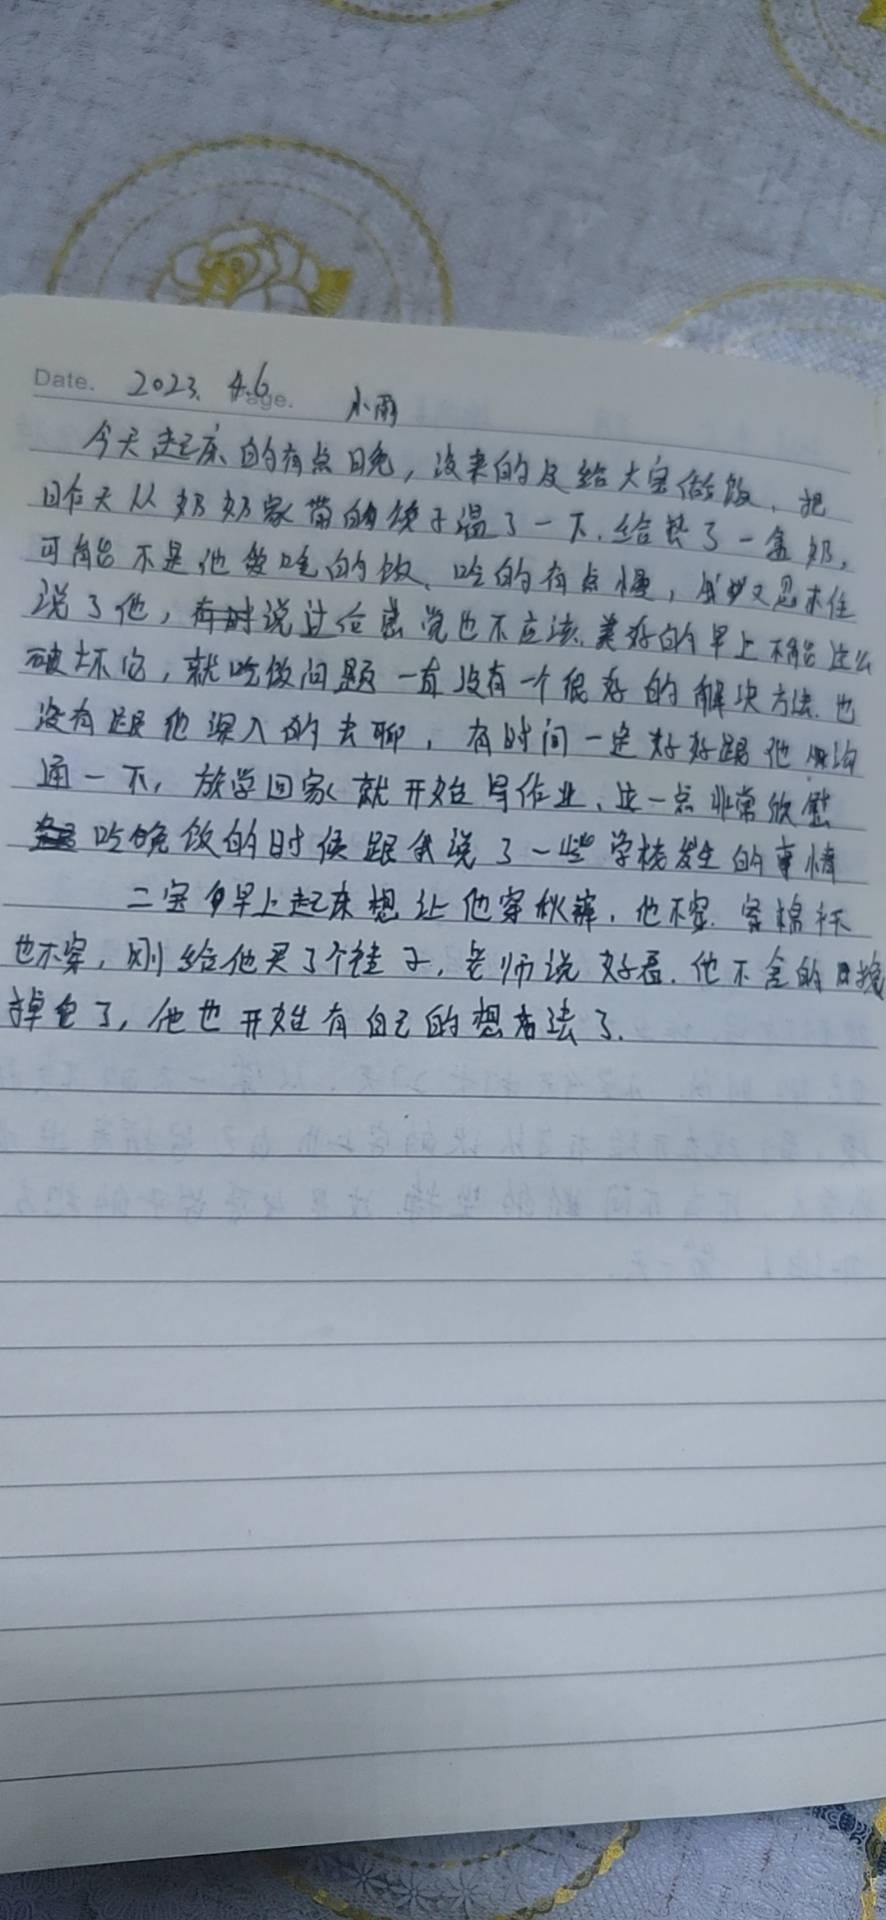 Date. 2023. 4.6 Page. 小雨
今天起床的有点晚，没来的及给大宝做饭，把
昨天从奶奶家带的馍子温了一下，给热了一盒奶，
可能不是他爱吃的饭、吃的有点慢，我又忍不住
说了他，有时说过后感觉也不应该.美好的早上不能这么
破坏的，就吃饭问题一直没有一个很好的解决方法.也
没有跟他深入的去聊，有时间一定好好跟他沟
通一下，放学回家就开始写作业、这一点非常欣慰
吃晚饭的时候跟我说了一些学校发生的事情
二宝早上起床想让他穿秋裤，他不穿.穿棉袄
也不穿，刚给他买了个褂子，老师说好看.他不舍的
掉它了，他也开始有自己的想法了.